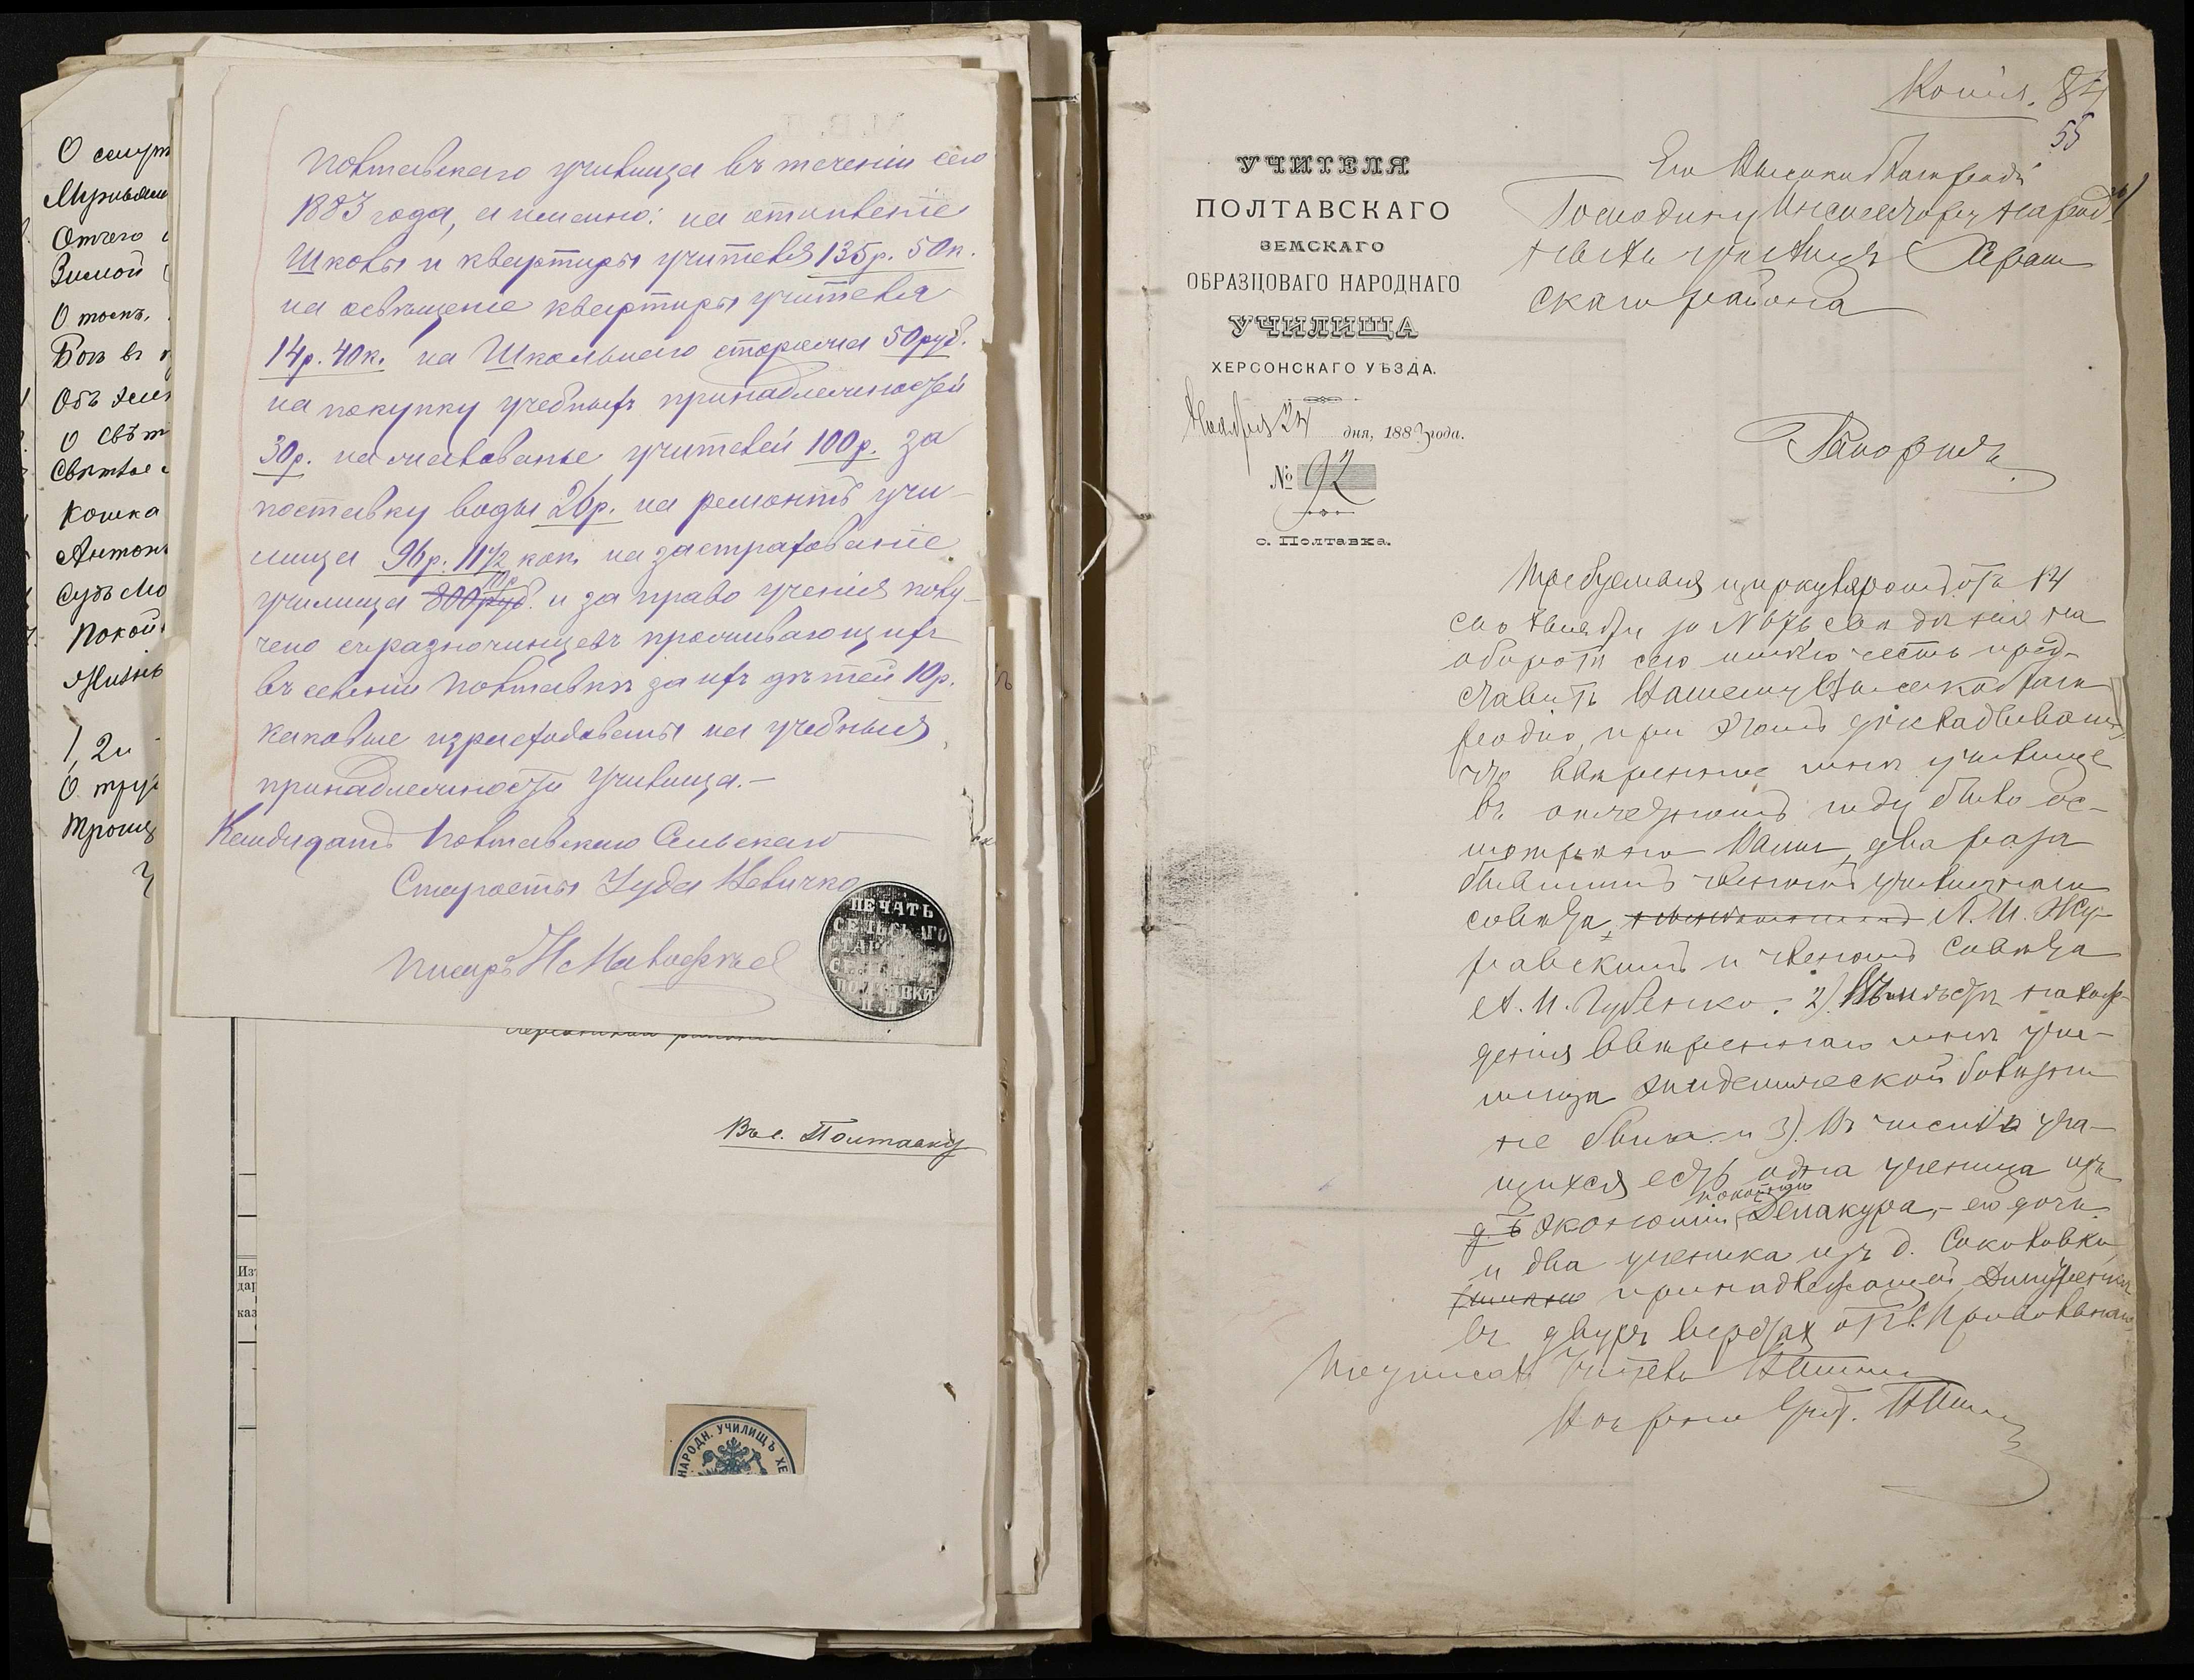 О смерт
Отчего
Зимой
О томъ,
Богъ въ
Объ
О свѣт
Святые
Кошка
Антон
Судъ
Покой
Жизнь
1, 2 и
О тру
Троиц
Полтавскаго училища въ теченіи сего
1883 года, а именно: на отопленіе
Школы и квартиры учителя 135 р. 50 к.
на освѣщеніе квартиры учителя
14 р. 40 к. на Школьнаго сторожа 50 руб.
на покупку учебныхъ принадлежностей
30 р. на жалованье учителей 100 р. за
поставку воды 26 р. на ремонтъ учи-
лища 96 р. 11 1/2 коп. на застрахованіе
училища 800 руб. и за право ученія полу-
чено съ разночинцевъ проживающихъ
въ селеніи Полтавкѣ за ихъ дѣтей 10 р.
каковые израсходованы на учебныя
принадлежности училища.—
Кандидатъ Полтавскаго Сельскаго
Старосты Іуда Величко
Писарь
ПЕЧАТЬ
СЕЛЬСКАГО
СТАРОСТЫ
СЕЛЕНІЯ
ПОЛТАВКИ
Въ с. Полтавку
НАРОДН. УЧИЛИЩЪ ХЕ
Из
дар
каз
Копія. 84
55
УЧИТЕЛЯ
ПОЛТАВСКАГО
ЗЕМСКАГО
ОБРАЗЦОВАГО НАРОДНАГО
УЧИЛИЩА
ХЕРСОНСКАГО УѢЗДА.
Ноября 24 дня, 1883 года.
№ 92
с. Полтавка.
Его Высокоблагородію
Господину Инспектору Народ-
ныхъ училищъ Херсон-
скаго района
Рапортъ
Требуемыя циркуляромъ отъ 14
сего Ноября за № свѣдѣнія на
оборотѣ сего имѣю честь пред-
ставить Вашему Высокоблаго-
родію, при этомъ докладываю,
что ввѣренное мнѣ училище
въ отчетномъ году было ос-
мотрѣно Вами, два раза
бывшимъ членомъ училищнаго
совѣта, А. И. Жу-
равскимъ и членомъ совѣта
А. И. Губенко. 2) Въ мѣстѣ нахож-
денія ввѣреннаго мнѣ учи-
лища эпидемической болѣзни
не было и 3). Въ числѣ уча-
щихся есть одна ученица изъ
экономіи Демакура,- его дочь
и два ученика изъ д. Соколовки
принадлежащей Дмитренко
въ двухъ верстахъ отъ
Подписалъ Учитель
Вѣрно: Учит.